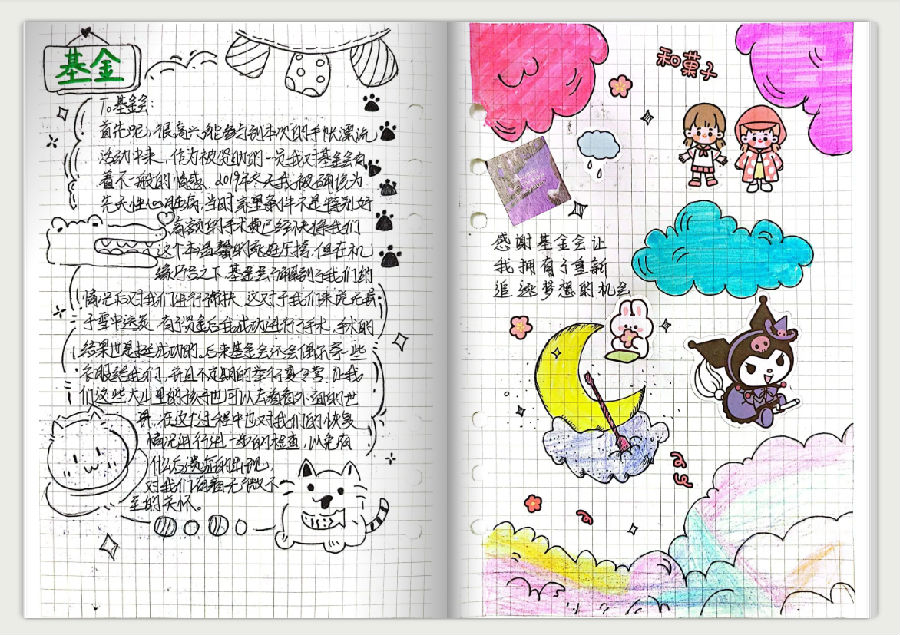 基金
To基金会:
首先呢,很高兴能够参与到本次的手帐漂流
活动中来,作为被资助的一员我对基金会有
着不一般的情感、2019年冬天我被确诊为
先天性心脏病,当时家里条件不是特别好
高额的手术费已经快将我们
这个本温馨的家庭压垮,但在机
缘巧合之下基金会了解到了我们的
情况和对我们进行了帮扶,这对于我们来说无异
于雪中送炭,有了资金后我成功进行了手术,手术的
结果也是挺成功的,后来基金会还会偶尔寄一些
衣服给我们,并且不定期的举行夏令营,让我
们这些大山里的孩子也可以去看看外面的世
界,在这过程中也对我们的恢复
情况进行进一步的检查,以免留
什么后遗症的出现,
对我们诠释无微不
至的关怀。
和菓子
感谢基金会让
我拥有了重新
追逐梦想的机会